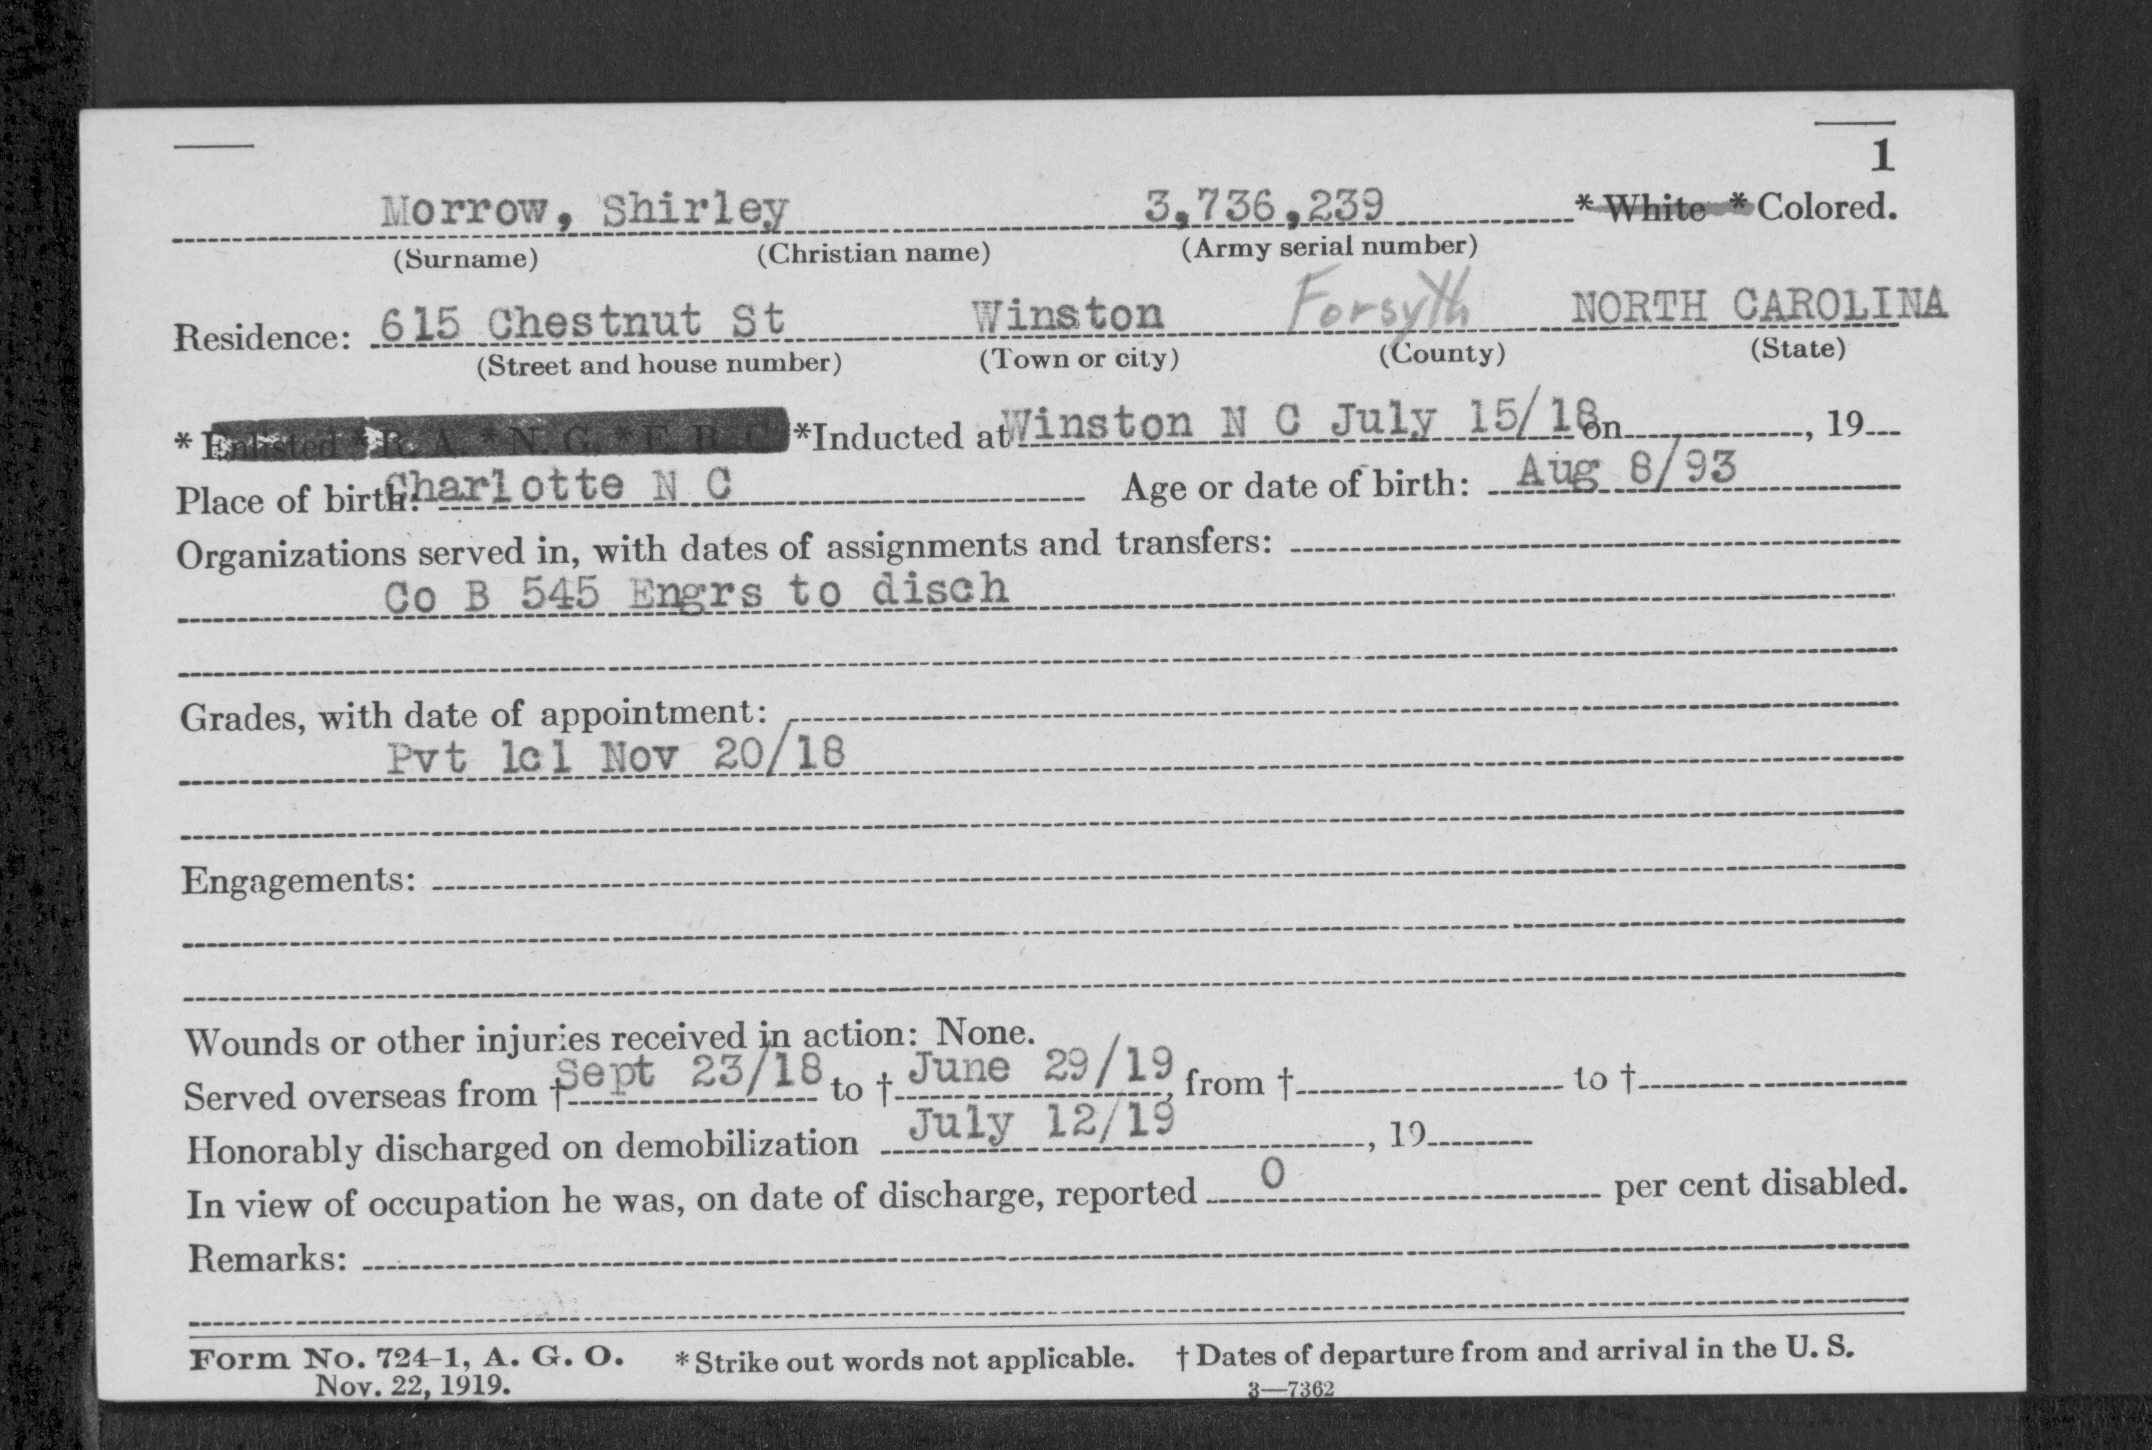 1
Morrow, Shirley 3,736,239 * White * Colored.
(Surname) (Christian name) (Army serial number)
Residence: 615 Chestnut St Winston Forsyth NORTH CAROLINA
(Street and house number) (Town or city) (County) (State)
* Enlisted * R. A. * N. G. * E. R. C. *Inducted at Winston N C July 15/18 on , 19
Place of birth: Charlotte N C Age or date of birth: Aug 8/93
Organizations served in, with dates of assignments and transfers:
Co B 545 Engrs to disch
Grades, with date of appointment:
Pvt 1cl Nov 20/18
Engagements:
Wounds or other injuries received in action: None.
Served overseas from † Sept 23/18 to † June 29/19, from † to †
Honorably discharged on demobilization July 12/19 , 19
In view of occupation he was, on date of discharge, reported 0 per cent disabled.
Remarks:
Form No. 724-1, A. G. O. * Strike out words not applicable. † Dates of departure from and arrival in the U. S.
Nov. 22, 1919. 3—7362